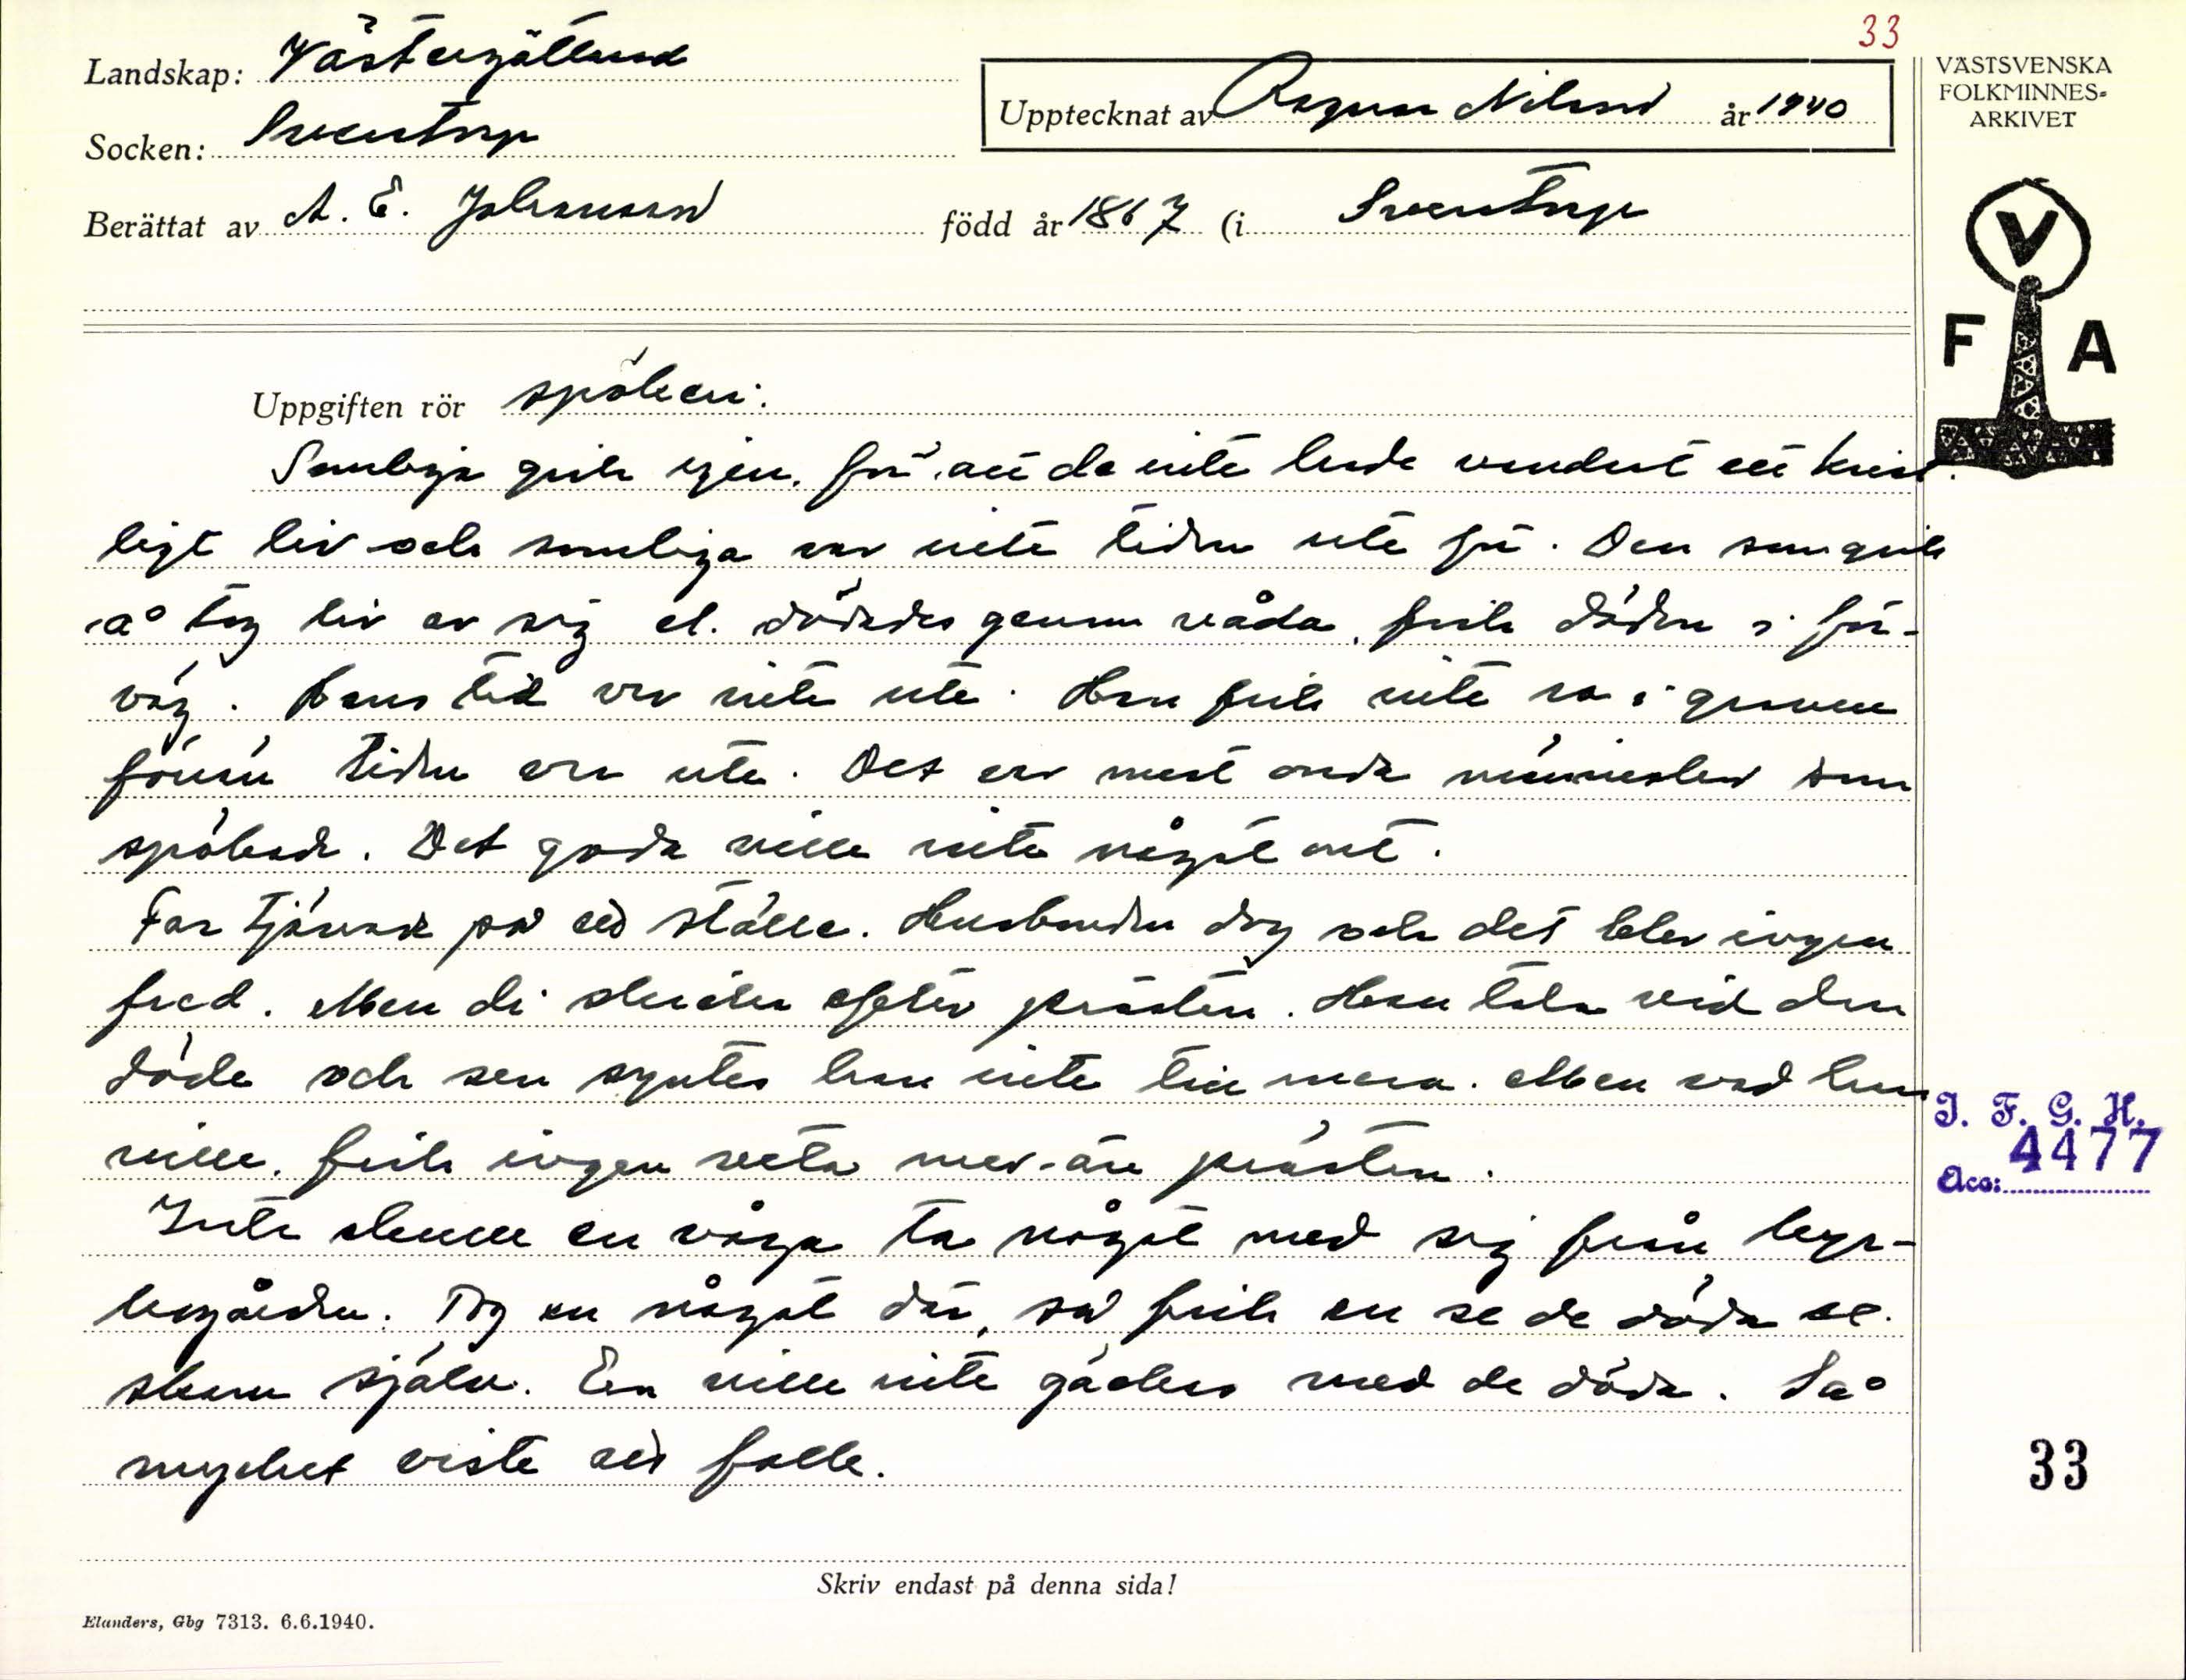 33
Landskap: Västergötland
Upptecknat av Ragnar Nilsson år 1940
VÄSTSVENSKA
FOLKMINNES-
ARKIVET
Socken: Sventorp
Berättat av A. E. Johansson född år 1867 (i Sventorp
V
F A
Uppgiften rör spökeri.
Somliga gick igen, för att de inte hade vandrat ett krist-
ligt liv och somliga var inte tiden ute för. Den som gick
å tog liv av sig el. dödades genom våda, fick döden i för-
väg. Hans tid var inte ute. Han fick inte ro i graven
förrän tiden var ute. Det var mest onda människor som
spökade. Det goda ville inte något ont.
Far tjänade på ett ställe. Husbonden dog och det blev ingen
fred. Men di skicka efter prästen. Han tala vid den
döde och sen syntes han inte till mera. Men vad han
ville, fick ingen veta mer än prästen.
Inte skulle en våga ta något med sig från kyr-
kogården. Tog en något där, så fick en se de döda el.
själv. En ville inte gäckas med de döda. Så
mycket visste allt folk.
I. F. G. H.
4477
Acc:
33
Skriv endast på denna sida!
Elanders, Gbg 7313. 6.6.1940.